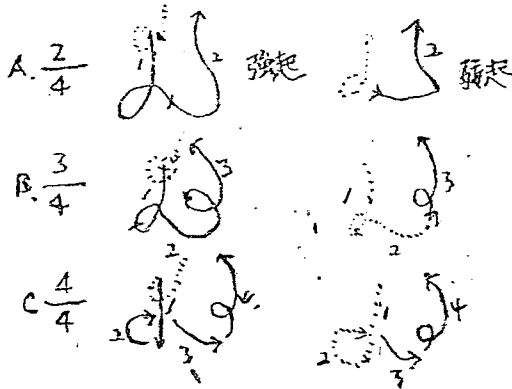 A. 2/4 1 2 強起 2 弱起
B. 3/4 1 3 1 2 3
C 4/4 2 1 2 3 4 1 2 3 4